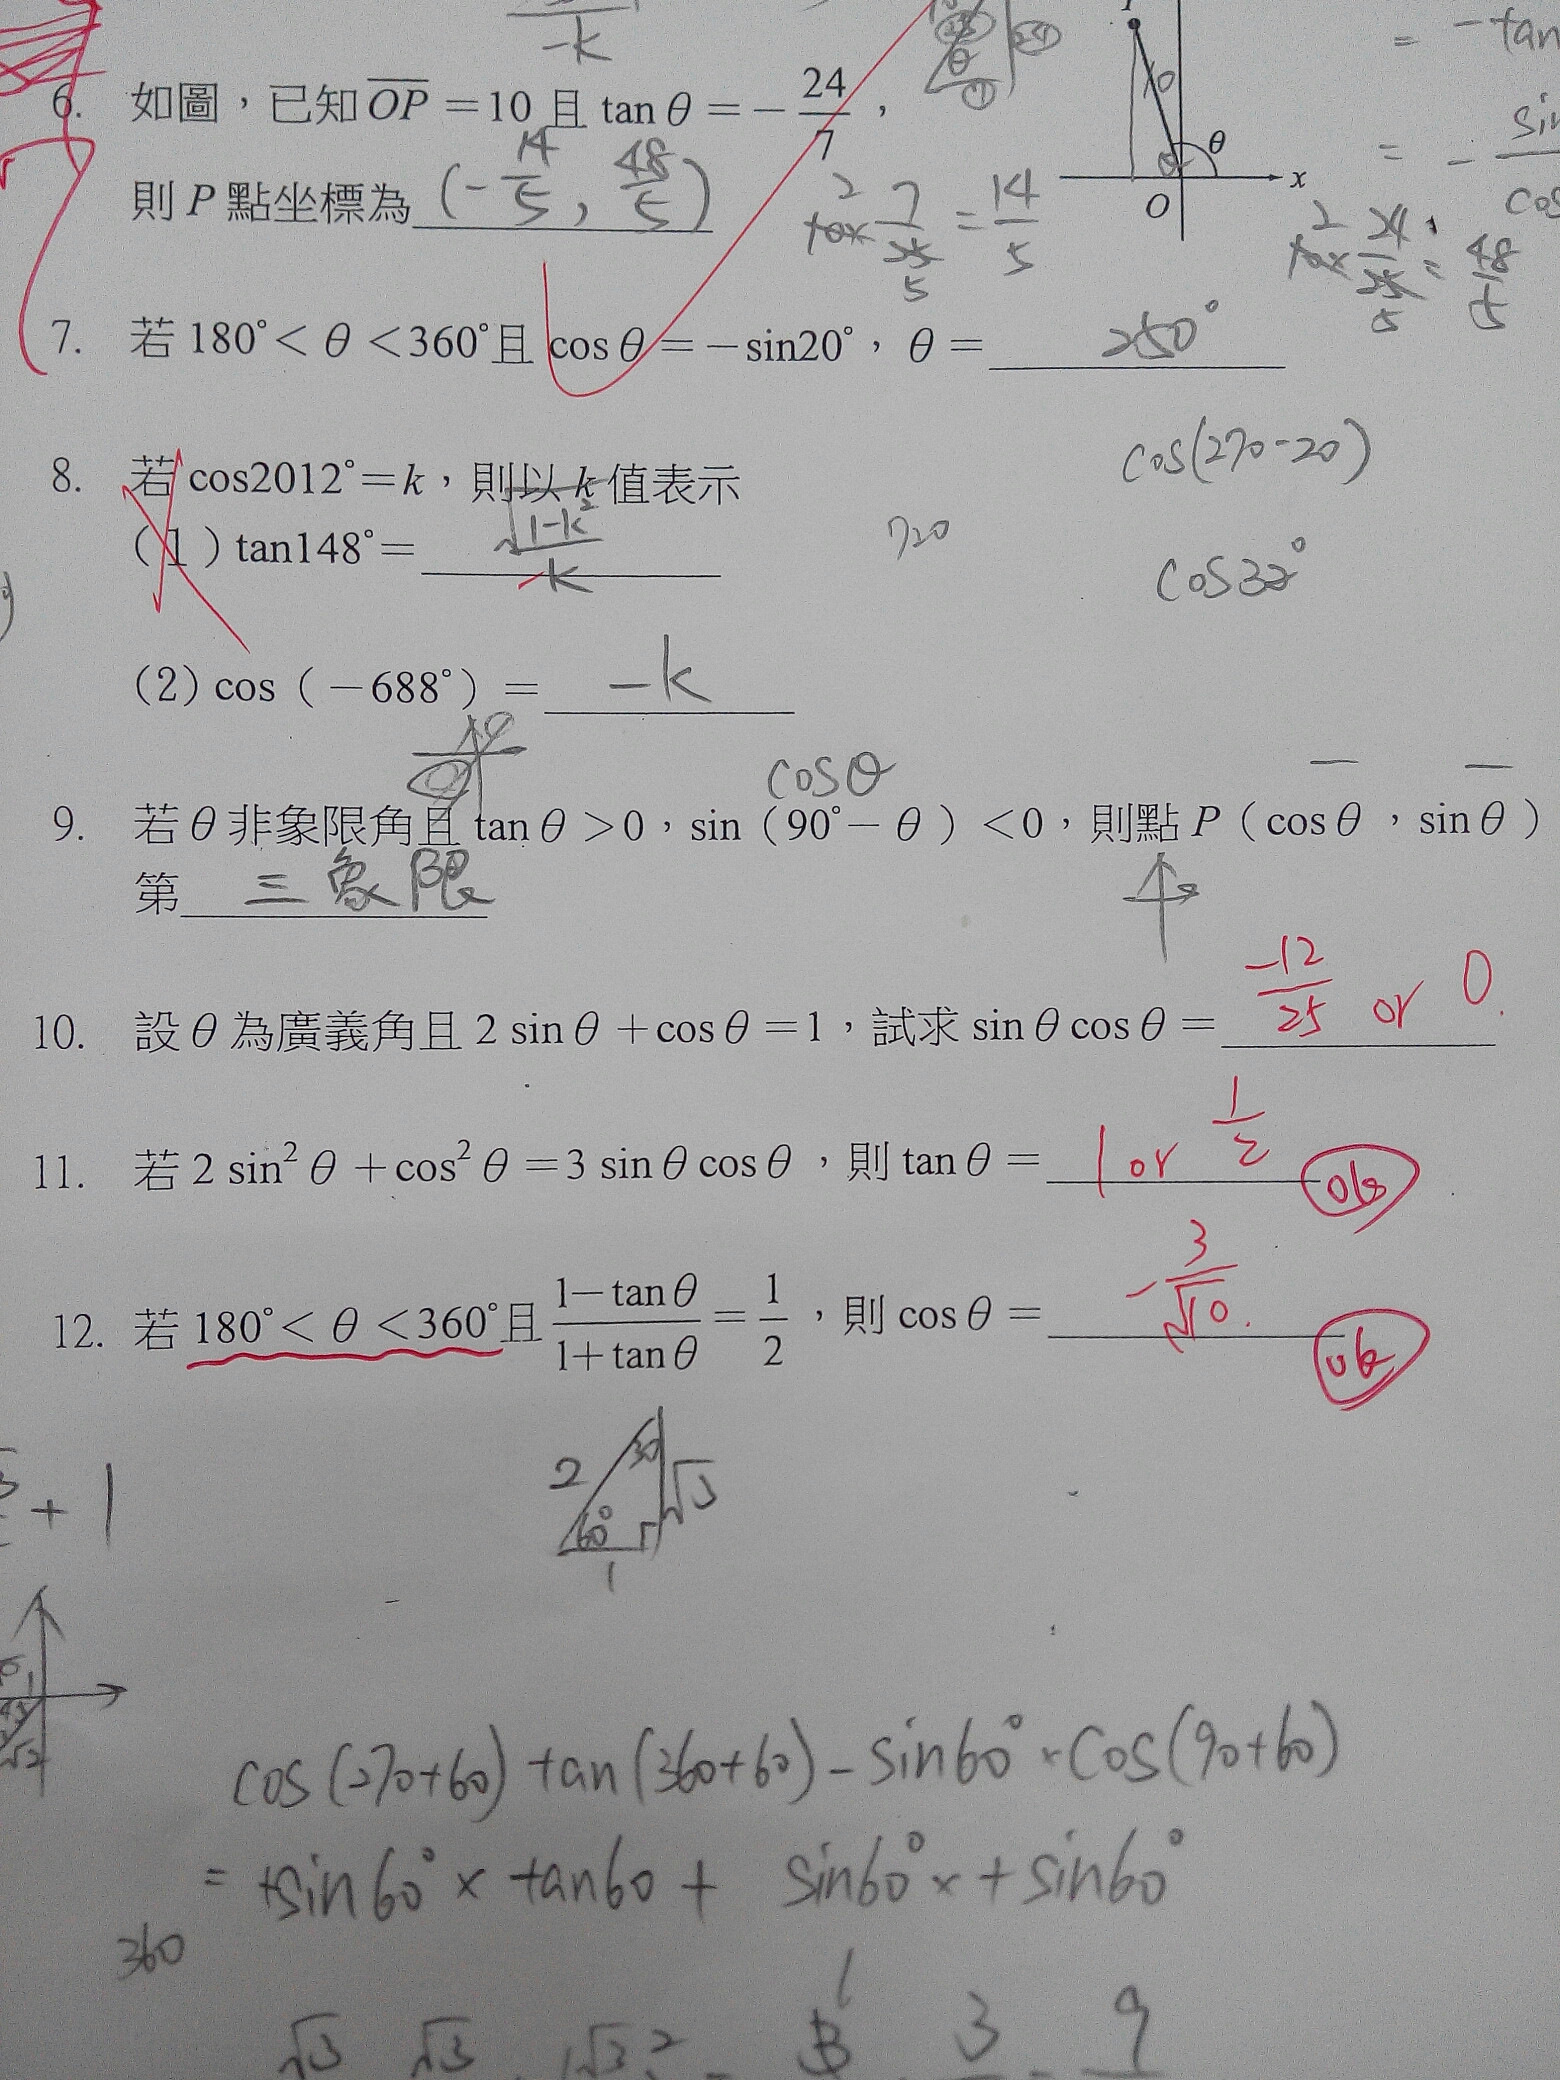 -k
= -tan
6. 如圖，已知 OP = 10 且 tan θ = - 24/7 ，
10
θ
x
O
sin
= - ——
cos
則 P 點坐標為 (- 14/5 , 48/5 )
10 × 7/25 = 14/5
2
5
10 × 24/25 = 48/5
2
5
7. 若 180° < θ < 360° 且 cos θ = - sin20°，θ = 250°
cos(270-20)
8. 若 cos2012° = k，則以 k 值表示
(1) tan148° = √(1-k²) / -k
720
cos32°
(2) cos（-688°）= -k
cosθ
9. 若 θ 非象限角且 tan θ > 0，sin（90° - θ）< 0，則點 P（cos θ，sin θ）
第 三象限
10. 設 θ 為廣義角且 2 sin θ + cos θ = 1，試求 sin θ cos θ = -12/25 or 0.
11. 若 2 sin² θ + cos² θ = 3 sin θ cos θ，則 tan θ = 1 or 1/2 ok
12. 若 180° < θ < 360° 且 (1 - tan θ)/(1 + tan θ) = 1/2，則 cos θ = - 3/√10. ok
2 30 √3
60°
1
+ 1
√2
cos(270+60) tan(360+60) - sin60° × cos(90+60)
= +sin60° × tan60 + sin60° × + sin60°
360
1
√3 √3 √3 2 3 3 9